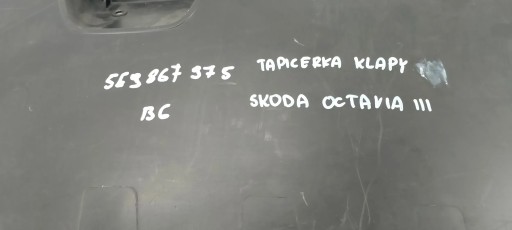 5E9867975 TAPICERKA KLAPY
BG SKODA OCTAVIA III